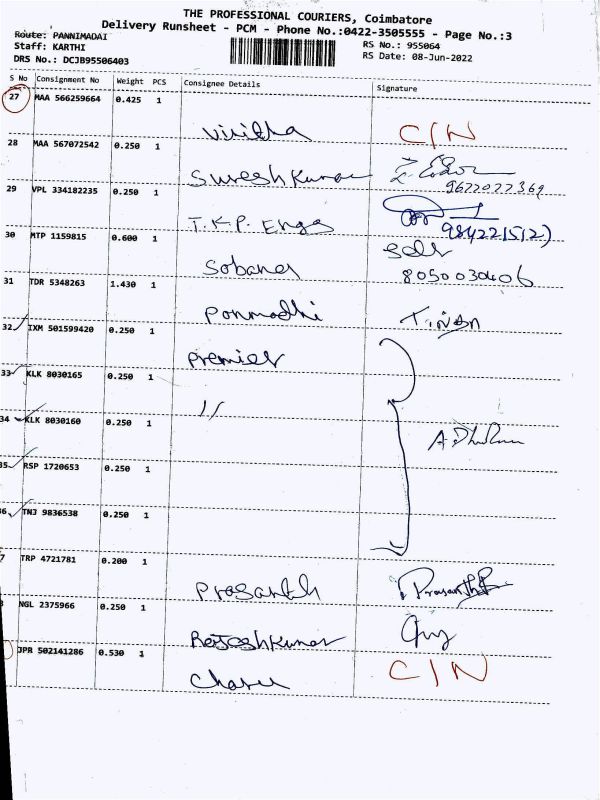 THE PROFESSIONAL COURIERS, Coimbatore
Delivery Runsheet - PCM - Phone No.:0422-3505555 - Page No.:3
Route: PANNIMADAI
Staff: KARTHI
DRS No.: DCJB95506403
RS No.: 955064
RS Date: 08-Jun-2022
S No Consignment No Weight PCS Consignee Details Signature
27 MAA 566259664 0.425 1
Vinitha C/N
28 MAA 567072542 0.250 1
Suresh Kumar
9622022369
29 VPL 334182235 0.250 1
T.K.P. Engg
30 MTP 1159815 0.600 1
Sobana
8050030406
31 TDR 5348263 1.430 1
Ponmadhi
32 IXM 501599420 0.250 1
Premier
33 KLK 8030165 0.250 1
11
34 KLK 8030160 0.250 1
35 RSP 1720653 0.250 1
36 TNJ 9836538 0.250 1
7 TRP 4721781 0.200 1
Prasanth Prasanth
NGL 2375966 0.250 1
Rajeshkumar
JPR 502141286 0.530 1
Charu C/N